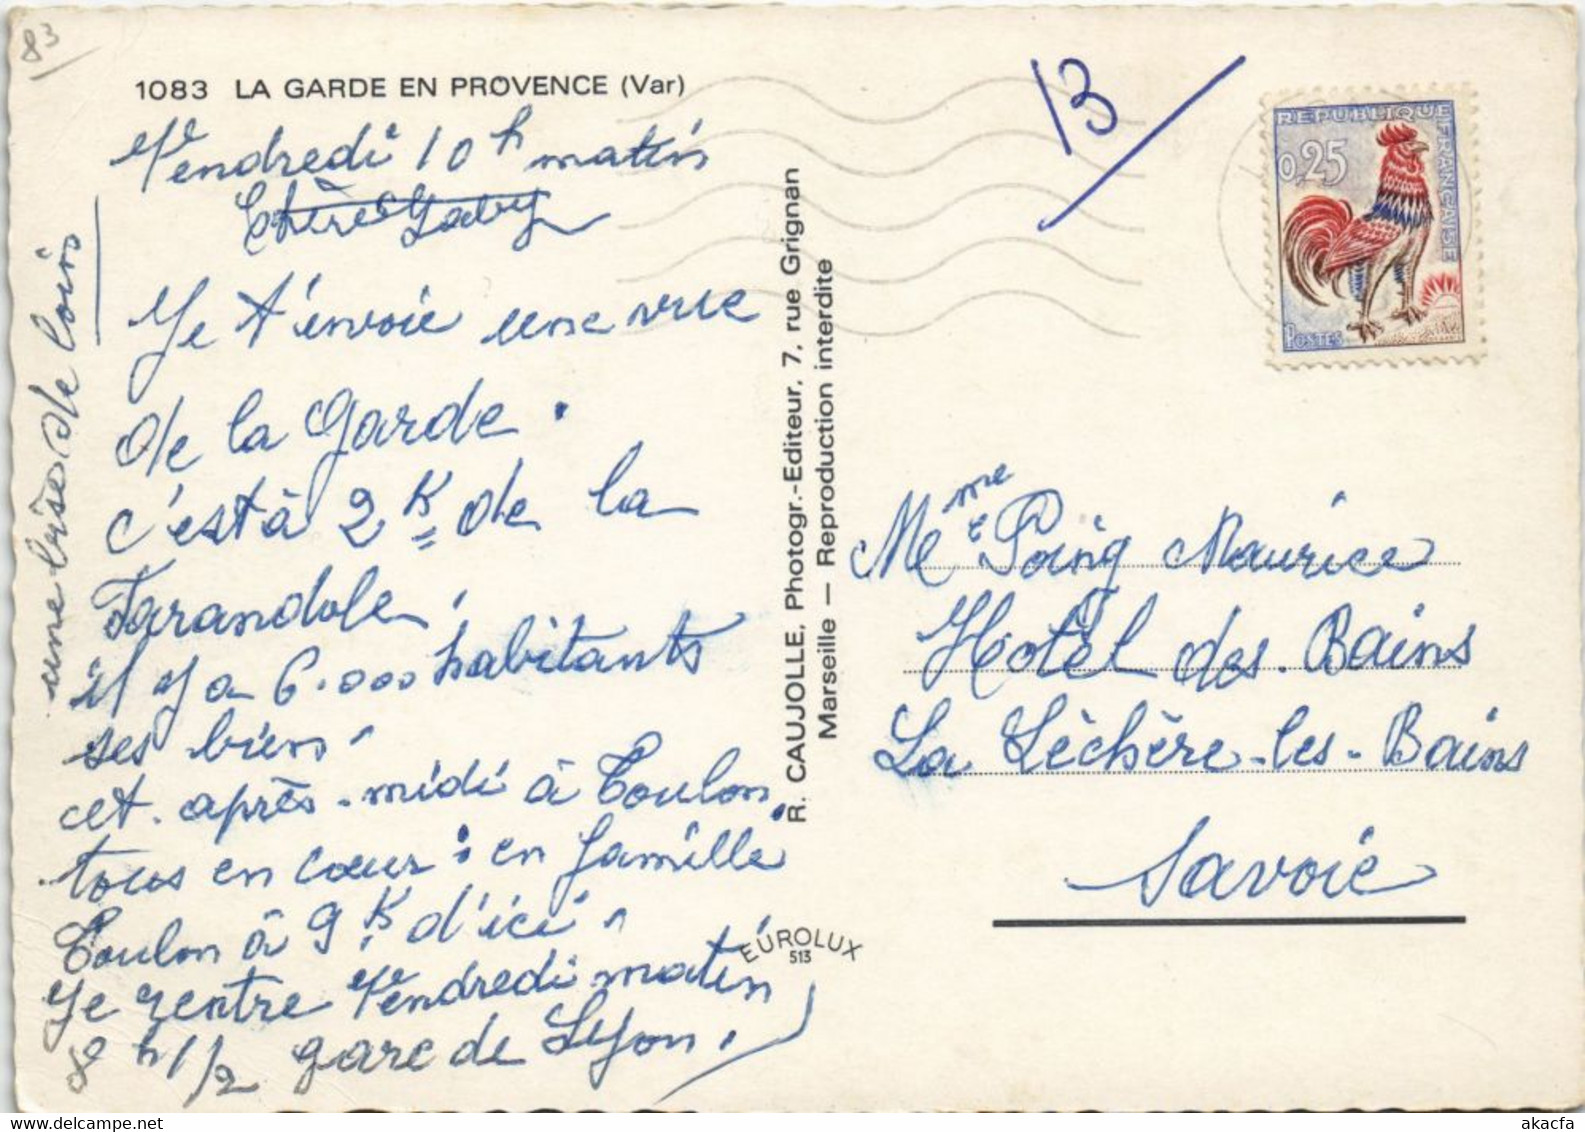 83
1083 LA GARDE EN PROVENCE (Var)
Vendredi 10 h matin
Chère Gaby
Je t'envoie une vue
de la Garde.
c'est à 2 K de la
Farandole,
il y a 6.000 habitants
ses bien.
cet. après-midi à Toulon
tous en cœur: en famille
Toulon à 9 K d'ici.
Je rentre Vendredi matin
8 h 1/2 gare de Lyon.
une bise de loin
R. CAUJOLLE, Photogr.-Editeur, 7, rue Grignan
Marseille — Reproduction interdite
EUROLUX
513
13
REPUBLIQUE FRANÇAISE
0,25
POSTES
Mme Poing Maurice
Hotêl des. Bains
La Lèchère-les-Bains
Savoie
akacfa
www.delcampe.net